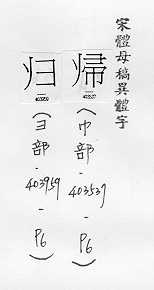 宋體母稿異體字
帰
(巾部-403537-P6)
归
(彐部-403959-P6)